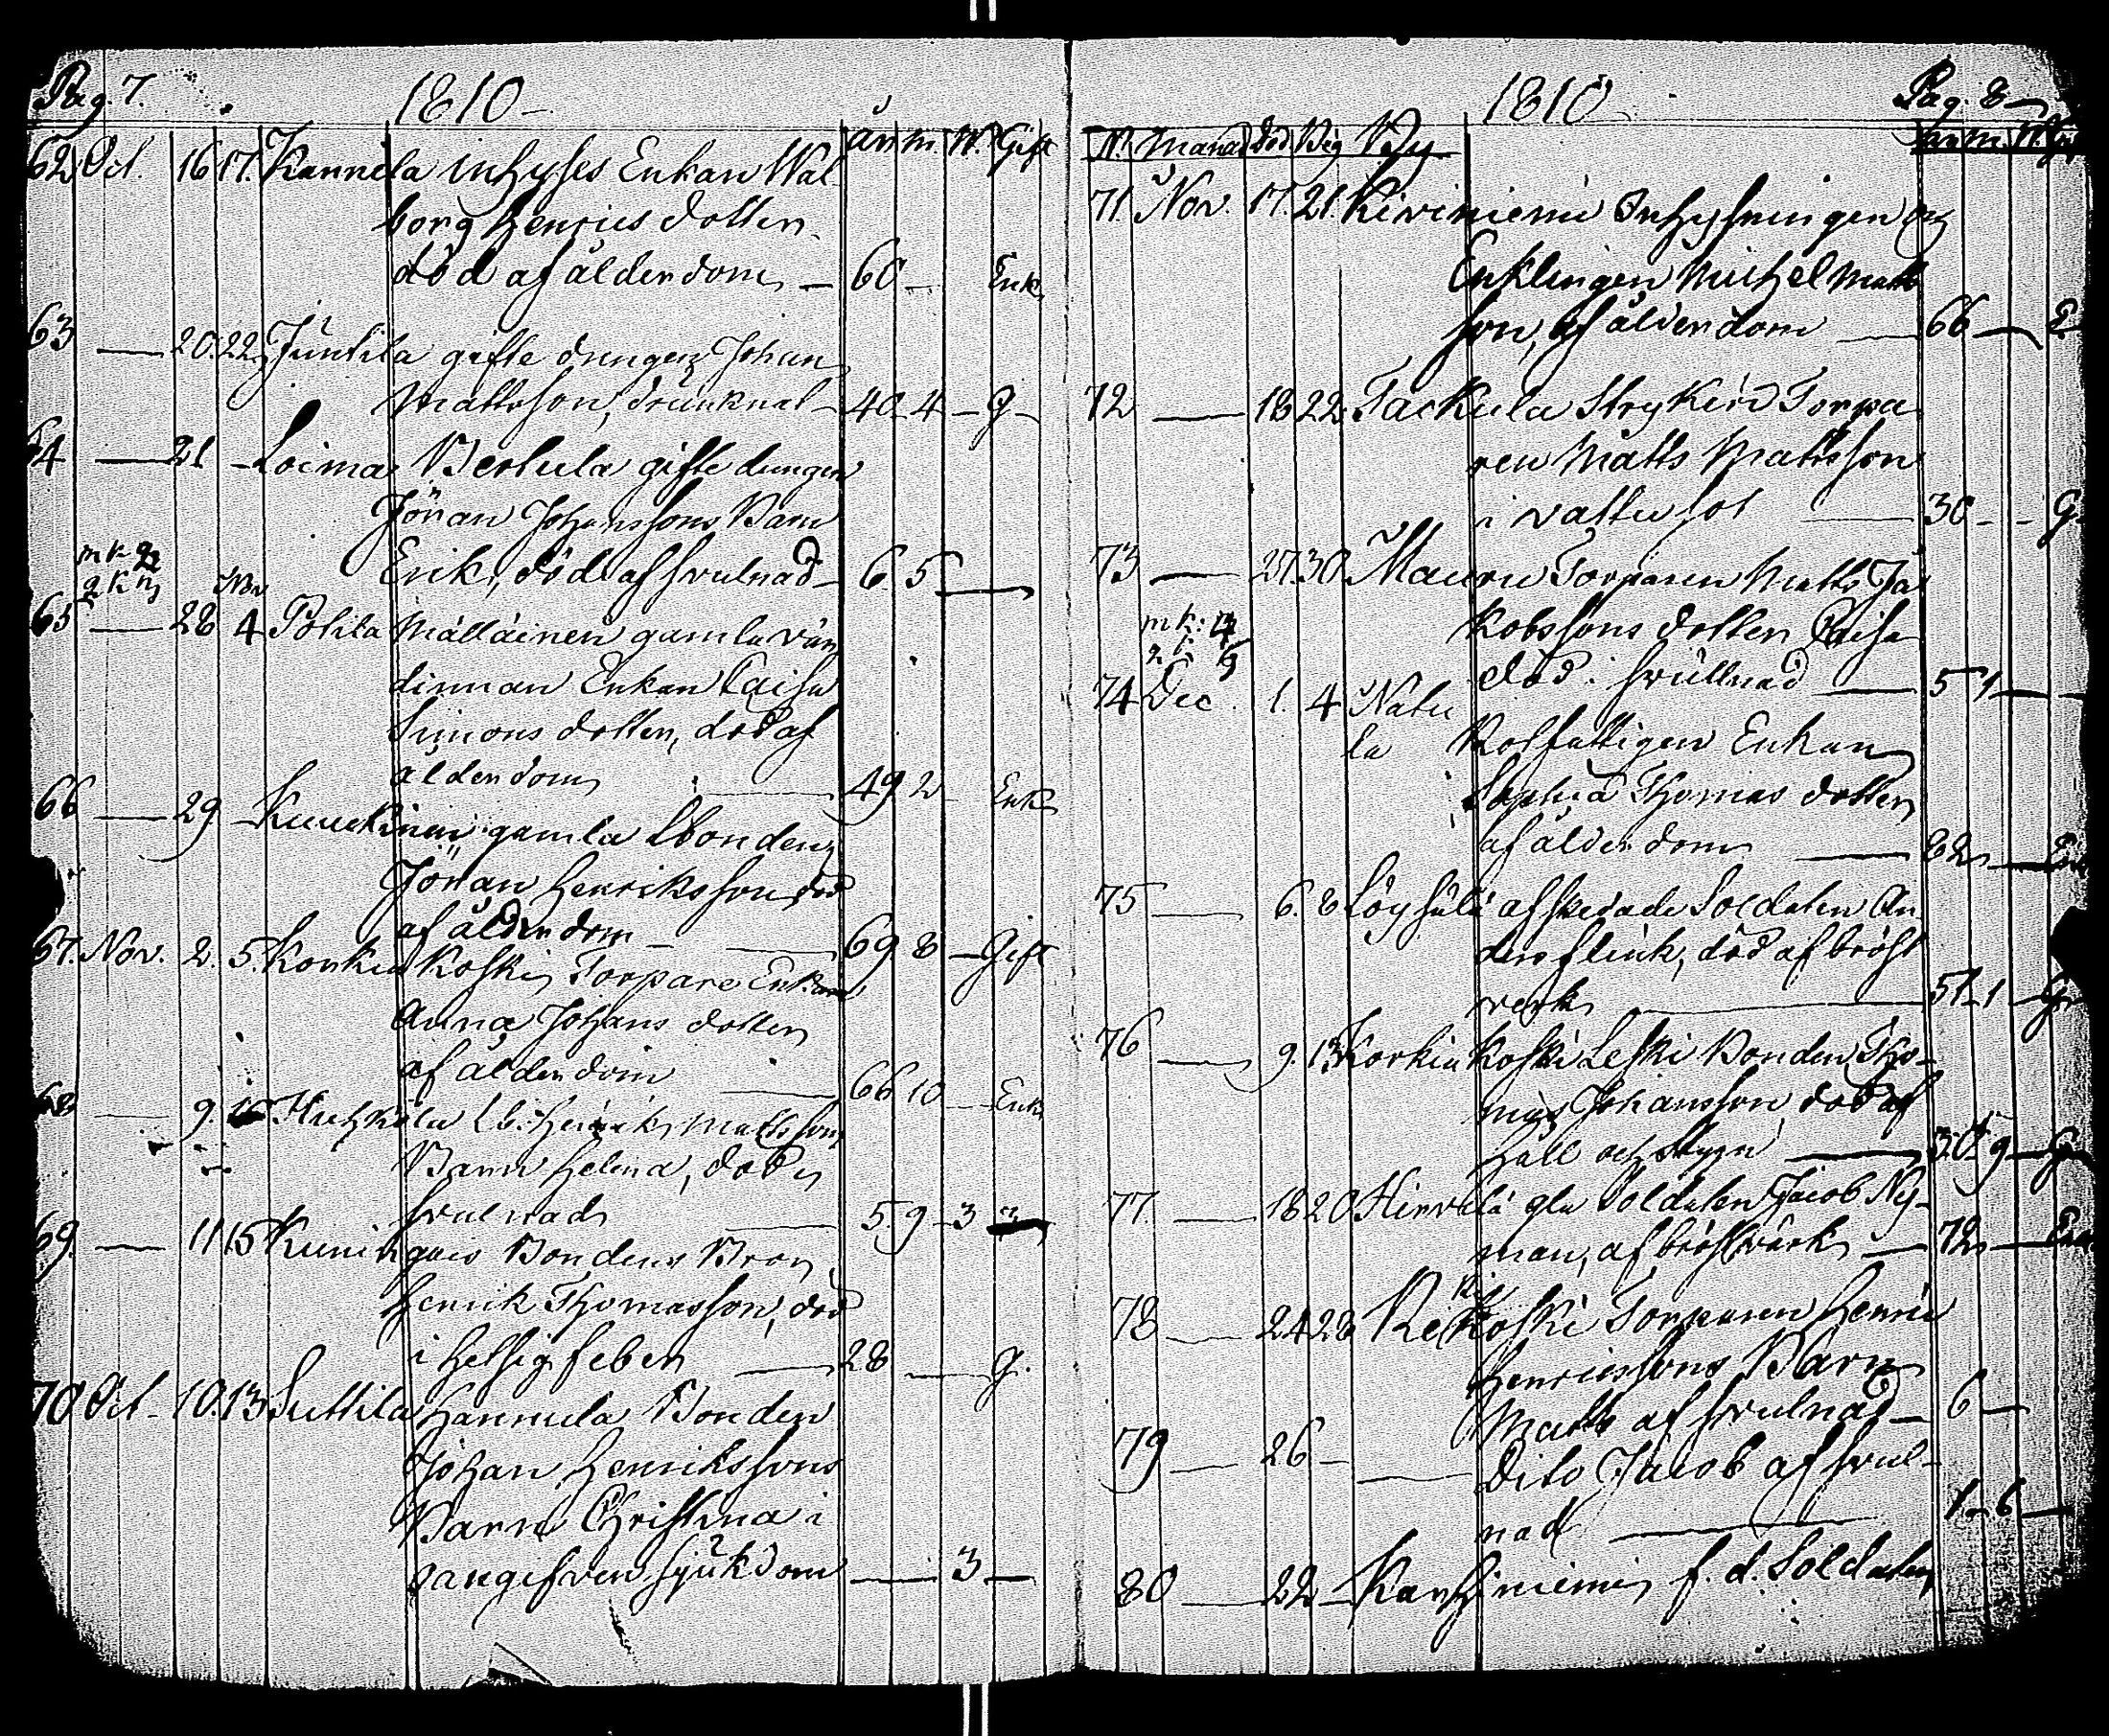 Pag. 7. 1810
år m. W. Gift
62 Oct. 16 17. Kannela Inhyses Enkan Wal
borg Henrics dotter
död af ålderdom — 60 — Enk
63 — 20. 22 Juntila gifte drengen Johan
Mattsson, drunknat — 40 4 — g
64 — 21 — Loima Bertula gifte drengen
Jöran Johanssons Barn
Erik, död af svulnad — 6. 5 —
mk 2
qk
Nov
65 — 28 4 Pohila Mälläinen gamla vär
dinnan Enkan Caisa
Simons dotter, död af
ålderdom — 49 2 Enk
66 — 29 — gamla bonden
Jöran Henriksson död
af ålderdom — 69 8 — Gift
67. Nov. 2. 5. Korkia Koski Torpare Enkan
Anna Johans dotter
af ålderdom — 66 10 — Enk
68 — 9. Huhkola Henrik Mattsson
Barn Helena, död
svulnad — 5. 9 — 3
69. — 11 15 Kuningas Bondens Bror
Henrik Thomasson, död
i Hetsig feber — 28 — g.
70 Oct — 10. 13 Suttila Hannula Bonden
Johan Henrikssons
Barn Christina i
oangifven sjukdom — 3 —
1810 Pag. 8
N. Manad död Beg By år m. W.
71 Nov. 17. 21. Kiviniemi Inhysningen og
Enklingen Michel Matts
son, af ålderdom — 66 — E
72 — 18 22 Tackula Strykeri Torpa
ren Matts Mattsson
i vattusot — 30 — g.
73 — 27. 30 Mauru Torparen Matts Ja
kobssons dotter Caisa
död i svullnad — 5 1 —
mk: 4
74 Dec. 1. 4 Natu
la Rotfattigen Enkan
Sophia Thomas dotter
af ålderdom — 82 — En
75 — 6. 8 Löysälä afskedade Soldaten An
ders flink, död af bröst
verk — 51 1 — g
76 — 9. 13 Korkia Koski Leski Bonden Tho-
mas Johansson, död af
håll och styng — 50 9 — G
77. — 18 20 Hirvelä gla Soldaten Jacob Ny-
man, af bröstvärk — 72 — En
78 — 24 28 koski Torparen Henric
Henricssons Barn
Matts af svulnad — 6 —
79 — 26 — Dito Jacob af svul-
nad — 1 — 6 —
80 — 22 — Karhiniemi f. d. Soldaten